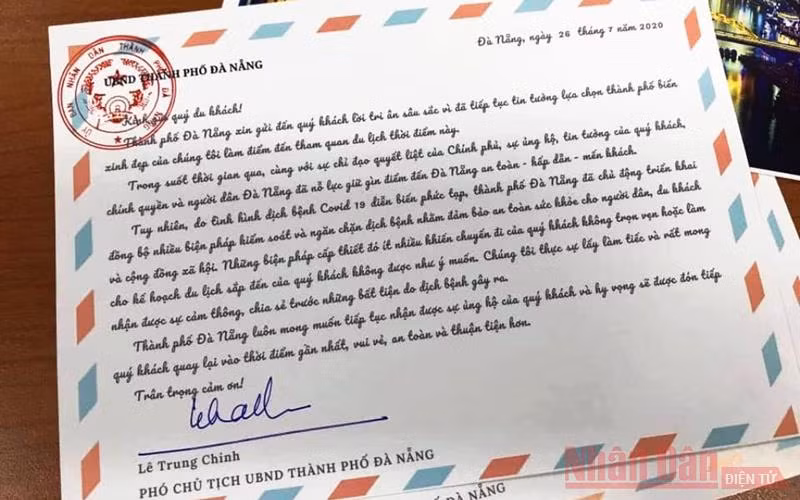 Đà Nẵng, ngày 26 tháng 7 năm 2020
UBND THÀNH PHỐ ĐÀ NẴNG
ỦY BAN NHÂN DÂN THÀNH PHỐ ĐÀ NẴNG
Kính gửi quý du khách!
Thành phố Đà Nẵng xin gửi đến quý khách lời tri ân sâu sắc vì đã tiếp tục tin tưởng lựa chọn thành phố biển
xinh đẹp của chúng tôi làm điểm đến tham quan du lịch thời điểm này.
Trong suốt thời gian qua, cùng với sự chỉ đạo quyết liệt của Chính phủ, sự ủng hộ, tin tưởng của quý khách,
chính quyền và người dân Đà Nẵng đã nỗ lực giữ gìn điểm đến Đà Nẵng an toàn - hấp dẫn - mến khách.
Tuy nhiên, do tình hình dịch bệnh Covid 19 diễn biến phức tạp, thành phố Đà Nẵng đã chủ động triển khai
đồng bộ nhiều biện pháp kiểm soát và ngăn chặn dịch bệnh nhằm đảm bảo an toàn sức khỏe cho người dân, du khách
và cộng đồng xã hội. Những biện pháp cấp thiết đó ít nhiều khiến chuyến đi của quý khách không trọn vẹn hoặc làm
cho kế hoạch du lịch sắp đến của quý khách không được như ý muốn. Chúng tôi thực sự lấy làm tiếc và rất mong
nhận được sự cảm thông, chia sẻ trước những bất tiện do dịch bệnh gây ra.
Thành phố Đà Nẵng luôn mong muốn tiếp tục nhận được sự ủng hộ của quý khách và hy vọng sẽ được đón tiếp
quý khách quay lại vào thời điểm gần nhất, vui vẻ, an toàn và thuận tiện hơn.
Trân trọng cảm ơn!
Lê Trung Chinh
PHÓ CHỦ TỊCH UBND THÀNH PHỐ ĐÀ NẴNG
Nhân Dân
ĐIỆN TỬ